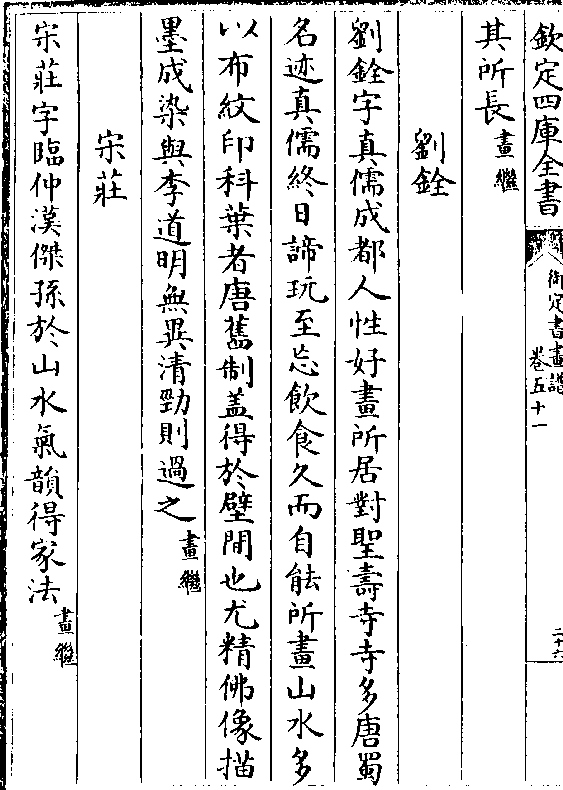 欽定四庫全書
御定書畫譜
卷五十一
二十六
其所長畫繼
劉銓
劉銓字真儒成都人性好畫所居對聖壽寺寺多唐蜀
名迹真儒終日諦玩至忘飲食久而自能所畫山水多
以布紋印科葉者唐舊制盖得於壁間也尤精佛像描
墨成染與李道明無異清勁則過之畫繼
宋莊
宋莊字臨仲漢傑孫於山水氣韻得家法畫繼